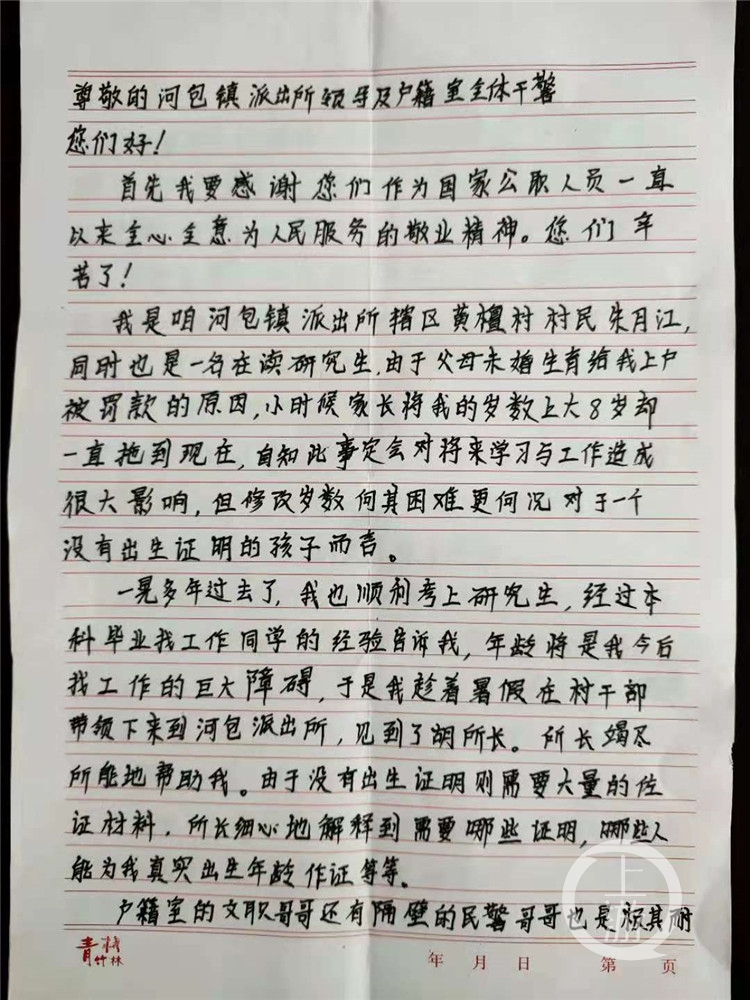 尊敬的河包镇派出所领导及户籍室全体干警
您们好！
首先我要感谢您们作为国家公职人员一直
以来全心全意为人民服务的敬业精神。您们辛
苦了！
我是咱河包镇派出所辖区黄檀村村民朱月江,
同时也是一名在读研究生,由于父母未婚生育给我上户
被罚款的原因,小时候家长将我的岁数上大8岁却
一直拖到现在,自知此事定会对将来学习与工作造成
很大影响,但修改岁数何其困难更何况对于一个
没有出生证明的孩子而言。
一晃多年过去了,我也顺利考上研究生,经过本
科毕业找工作同学的经验告诉我,年龄将是我今后
找工作的巨大障碍,于是我趁着暑假在村干部
带领下来到河包派出所,见到了胡所长。所长竭尽
所能地帮助我。由于没有出生证明则需要大量的佐
证材料,所长细心地解释到需要哪些证明,哪些人
能为我真实出生年龄作证等等。
户籍室的文职哥哥还有隔壁的民警哥哥也是极其耐
青竹林
年 月 日 第 页
上游